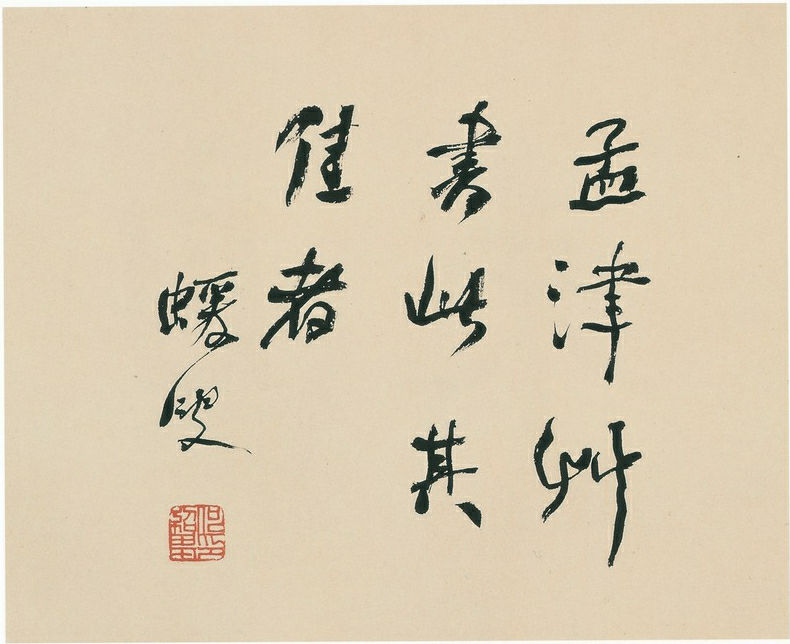 孟津艸
書此其
佳者
蝯叟